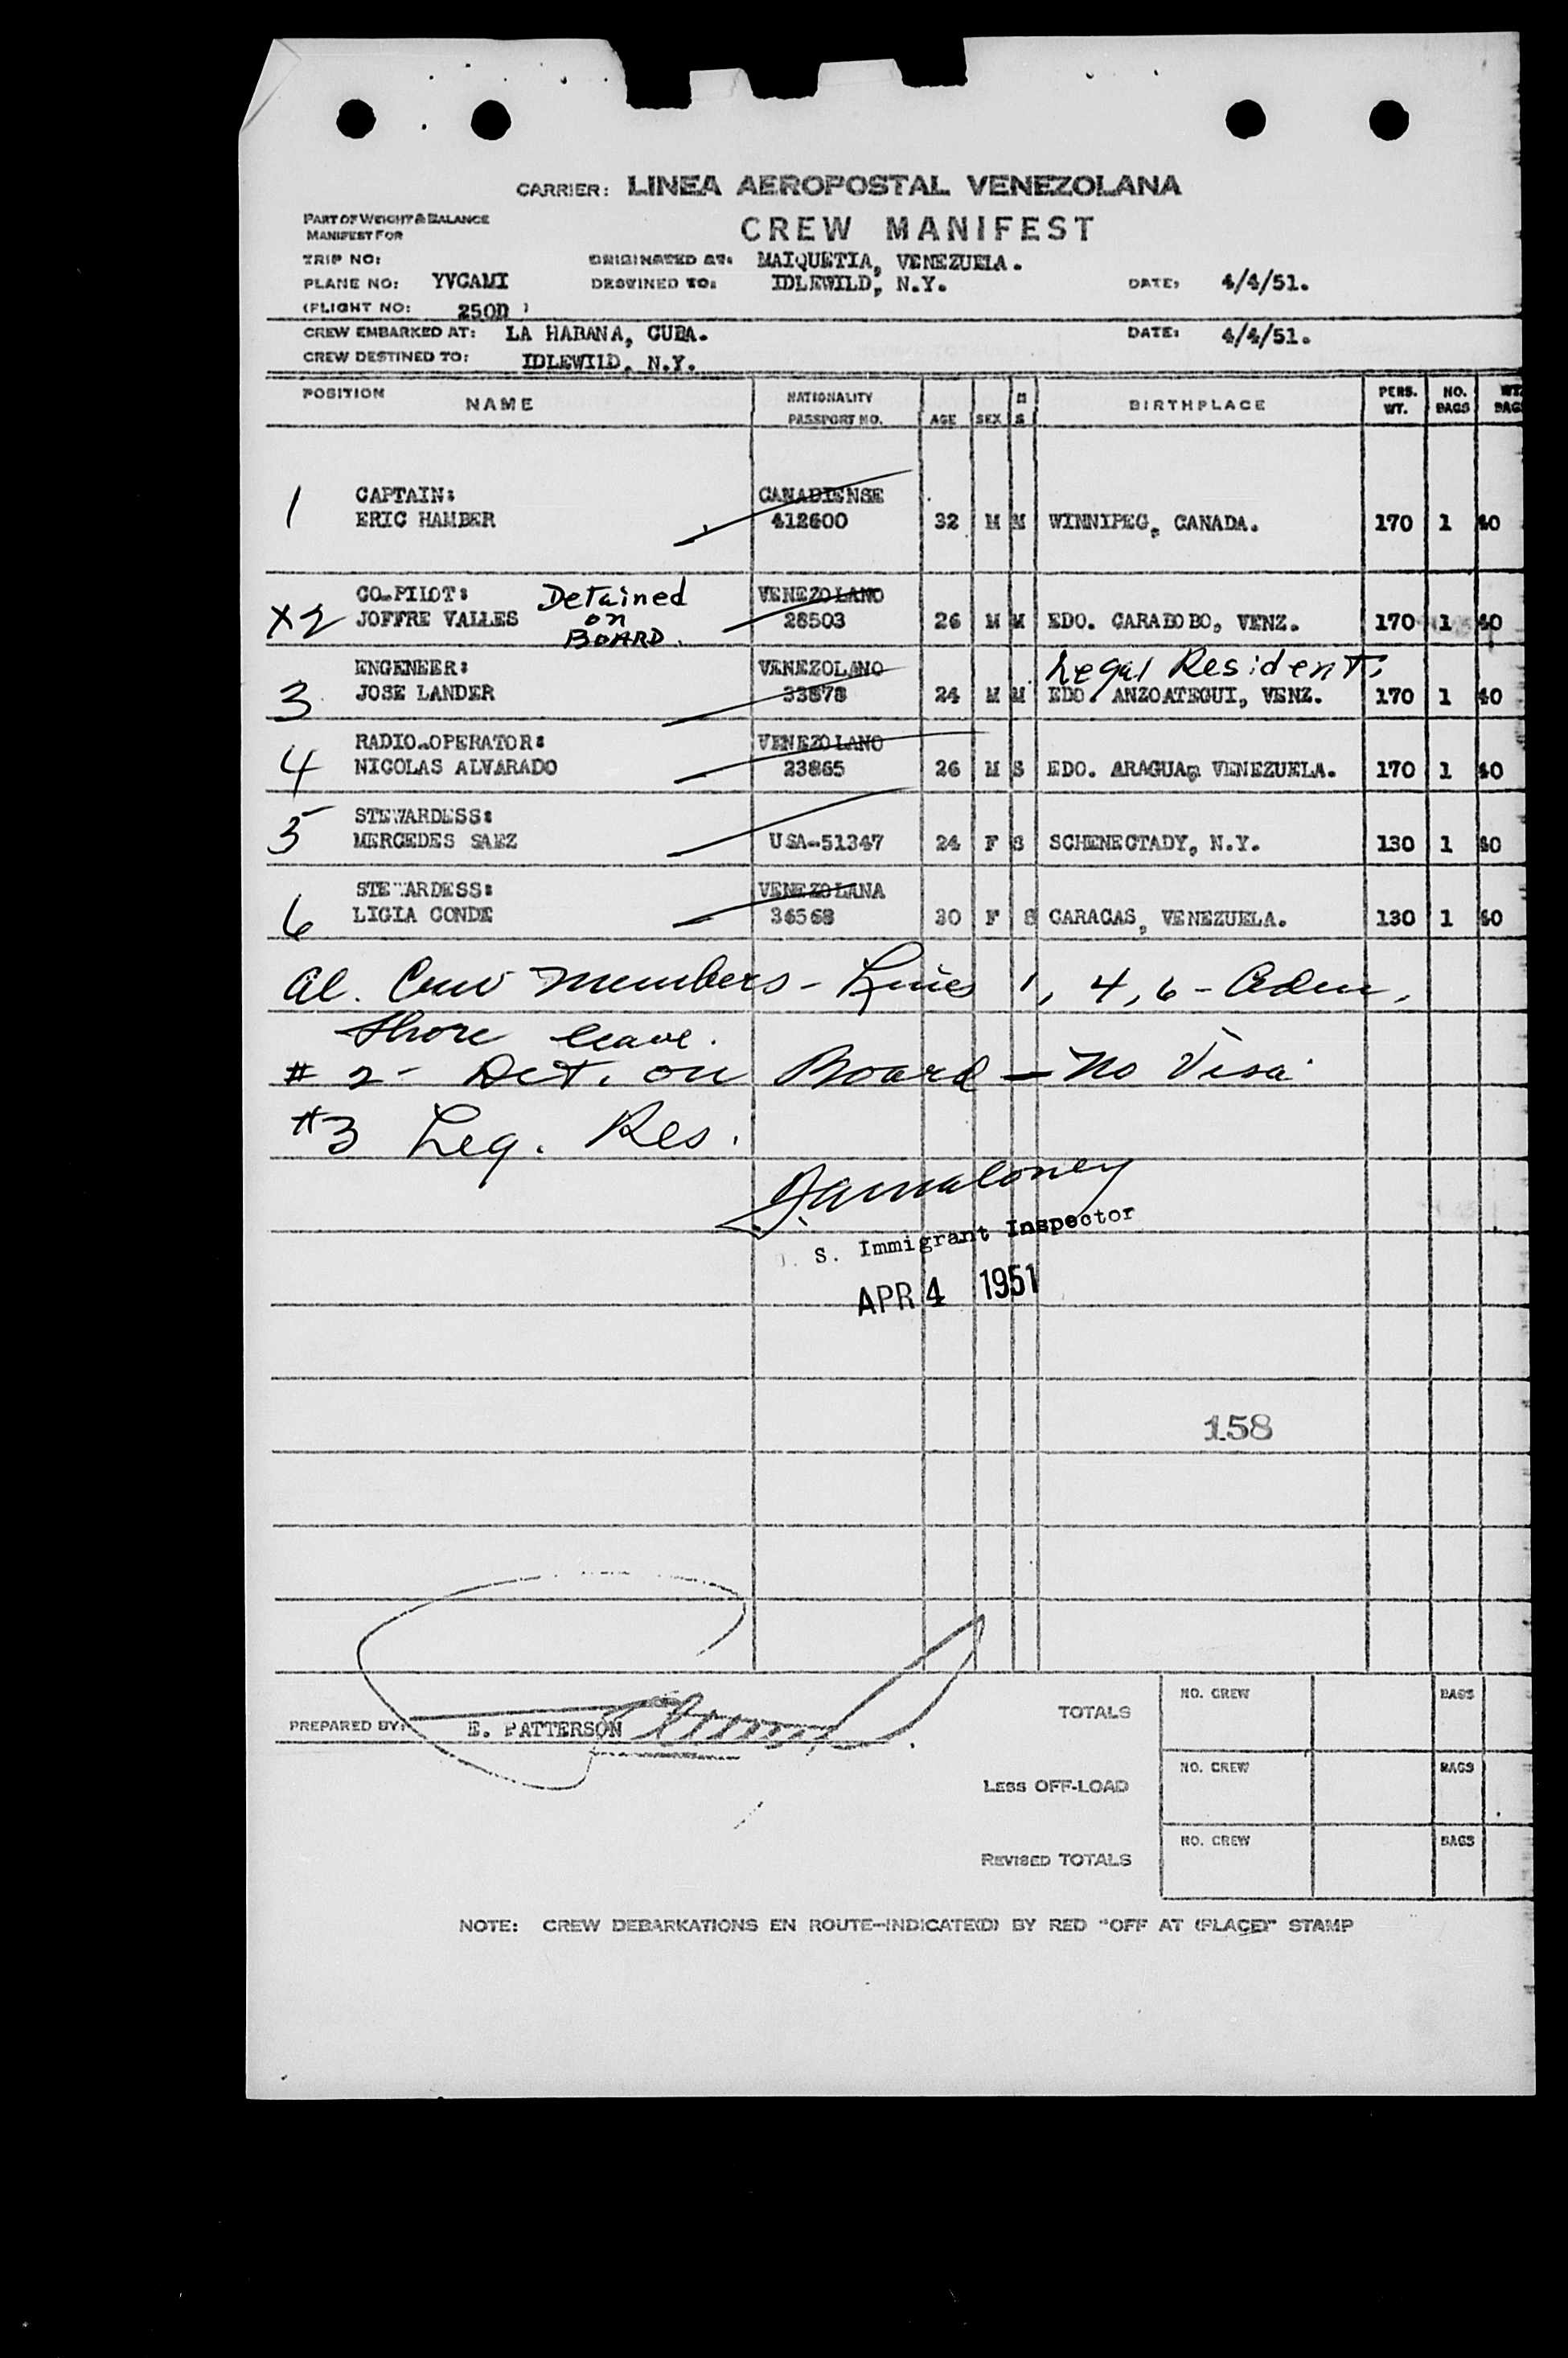 CARRIER: LINEA AEROPOSTAL VENEZOLANA
PART OF WEIGHT & BALANCE
MANIFEST FOR
CREW MANIFEST
TRIP NO: ORIGINATED AT: MAIQUETIA, VENEZUELA.
PLANE NO: YVCAMI DESTINED TO: IDLEWILD, N.Y. DATE: 4/4/51.
(FLIGHT NO: 250D )
CREW EMBARKED AT: LA HABANA, CUBA. DATE: 4/4/51.
CREW DESTINED TO: IDLEWILD, N.Y.
POSITION NAME NATIONALITY PASSPORT NO. AGE SEX M S BIRTHPLACE PERS. WT. NO. BAGS WT. BAGS
CAPTAIN: CANADIENSE
1 ERIC HAMBER 412600 32 M M WINNIPEG, CANADA. 170 1 40
CO-PILOT: Detained on BOARD. VENEZOLANO
X2 JOFFRE VALLES 28503 26 M M EDO. CARABOBO, VENZ. 170 1 40
ENGENEER: VENEZOLANO Legal Resident
3 JOSE LANDER 33878 24 M M EDO. ANZOATEGUI, VENZ. 170 1 40
RADIO-OPERATOR: VENEZOLANO
4 NICOLAS ALVARADO 23865 26 M S EDO. ARAGUA, VENEZUELA. 170 1 40
STEWARDESS:
5 MERCEDES SAEZ USA-51347 24 F S SCHENECTADY, N.Y. 130 1 40
STEWARDESS: VENEZOLANA
6 LIGIA CONDE 36568 30 F S CARACAS, VENEZUELA. 130 1 40
Al. Crew Members - Lines 1, 4, 6 - Adm.
Shore leave.
# 2 - Det. on Board - No Visa
#3 Leg. Res.
Maloney
S. Immigrant Inspector
APR 4 1951
158
PREPARED BY: E. PATTERSON
TOTALS NO. CREW BAGS
LESS OFF-LOAD NO. CREW BAGS
REVISED TOTALS NO. CREW BAGS
NOTE: CREW DEBARKATIONS EN ROUTE-INDICATE(D) BY RED "OFF AT (PLACE)" STAMP